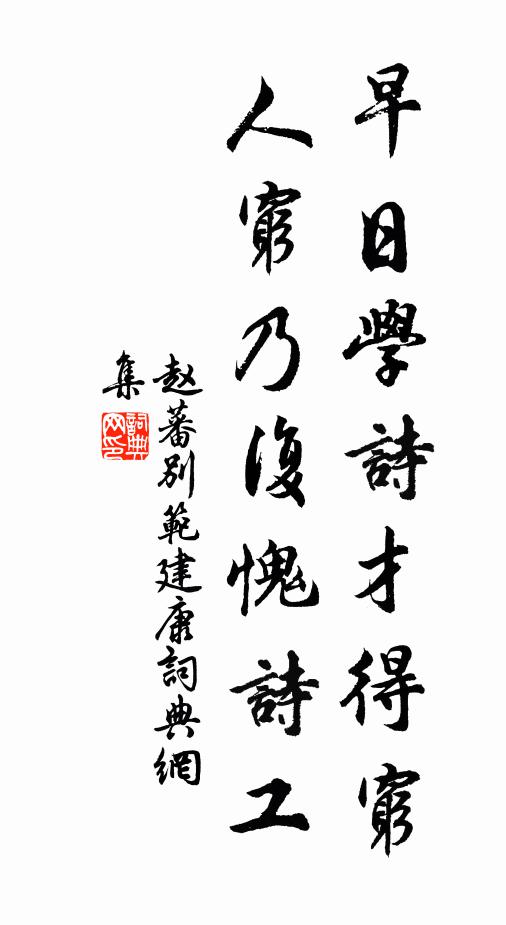 早日學詩才得窮
人窮乃復愧詩工
赵蕃别範建康詞典網
集
詞典网印